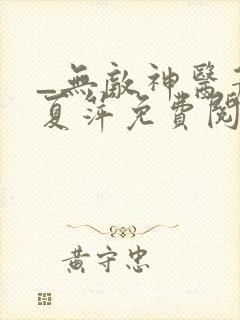 _無敵神醫
夏萍免費閱
黃守忠